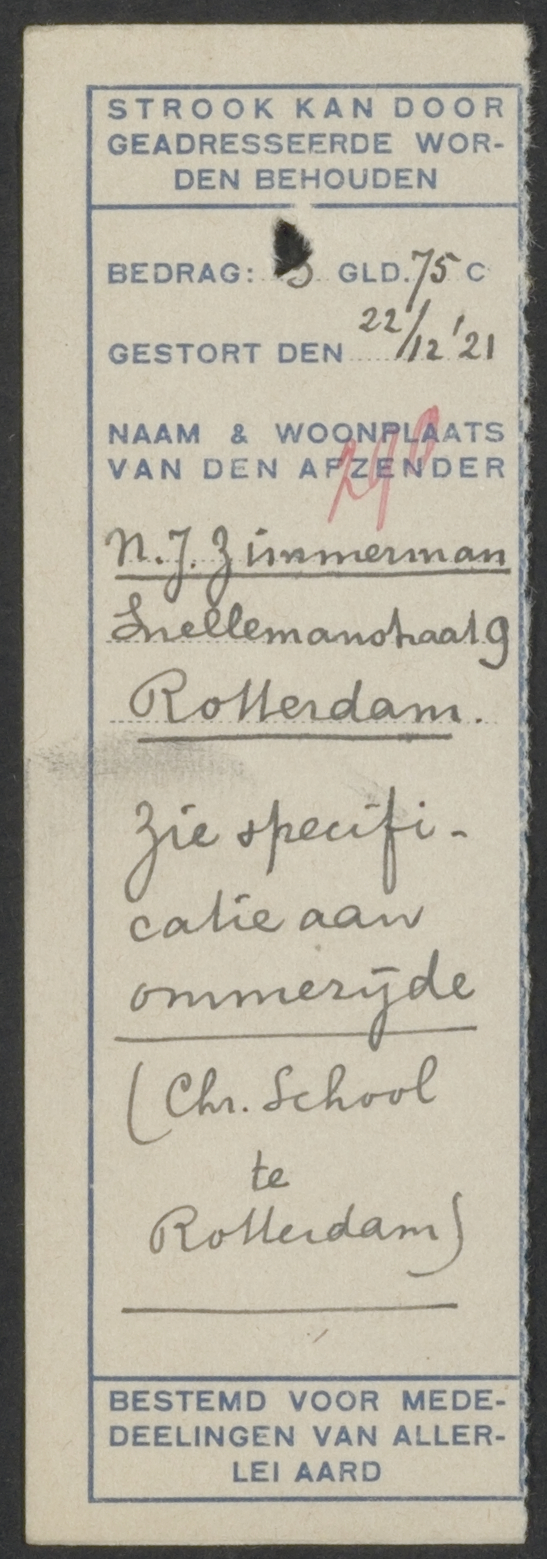 STROOK KAN DOOR
GEADRESSEERDE WOR-
DEN BEHOUDEN
BEDRAG: GLD. 75 C
GESTORT DEN 22/12 '21
NAAM & WOONPLAATS
VAN DEN AFZENDER
290
N. J. Zimmerman
Snellemanstraat 9
Rotterdam.
Zie specifi-
catie aan
ommezijde
(Chr. School
te
Rotterdam)
BESTEMD VOOR MEDE-
DEELINGEN VAN ALLER-
LEI AARD